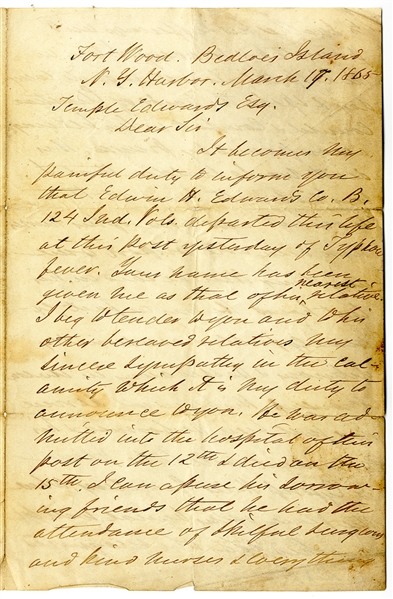 Fort Wood. Bedloes Island
N. Y. Harbor. March 17. 1865
Temple Edwards Esq.
Dear Sir
It becomes my
painful duty to inform you
that Edwin H. Edwards Co. B.
124 Ind. Vols. departed this life
at this post yesterday of Typhoid
fever. Your name has been
given me as that of his nearest relative.
I beg to tender to you and to his
other bereaved relatives my
sincere sympathy in the cal-
amity which it is my duty to
announce to you. He was ad-
mitted into the hospital of this
post on the 12th & died on the
15th. I can assure his sorrow-
ing friends that he had the
attendance of skilful surgeons
and kind nurses & everything